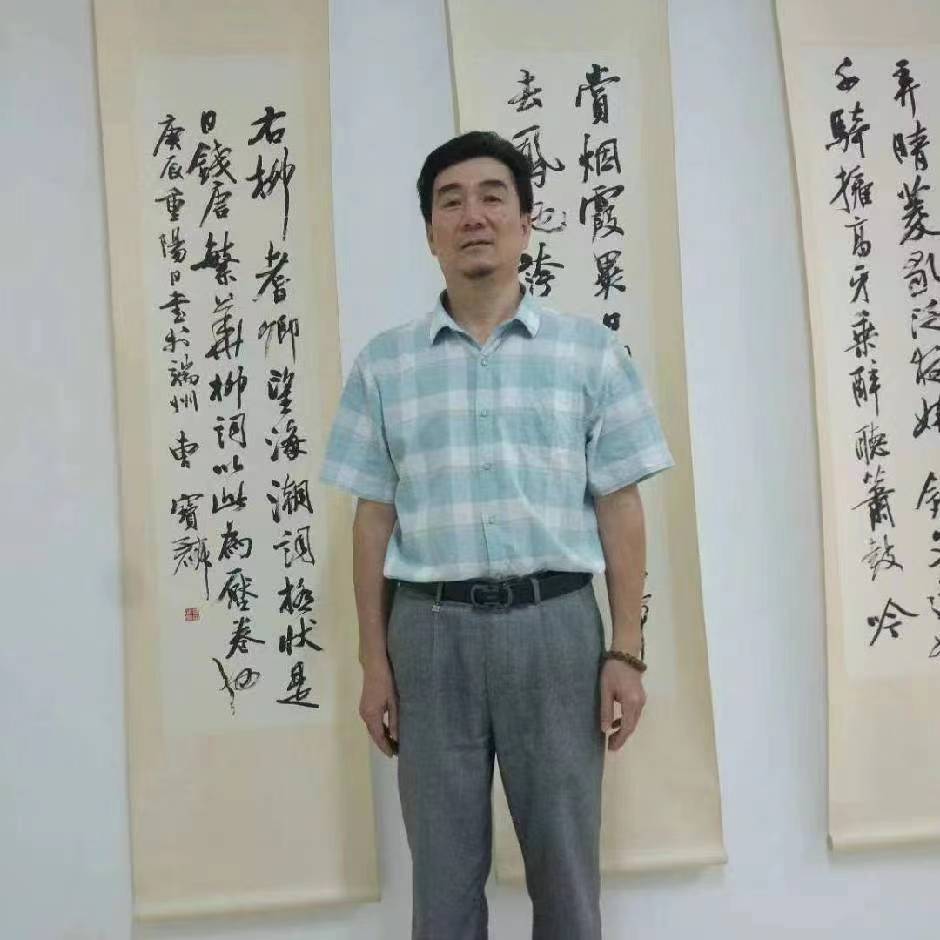 弄晴菱歌泛夜嬉
千騎擁高牙乘醉聽簫鼓吟
賞烟霞異日
去鳳池誇
右柳耆卿望海潮詞極狀是
日錢唐繁華柳詞以此為壓卷也
庚辰重陽日書於端州曹寶麟